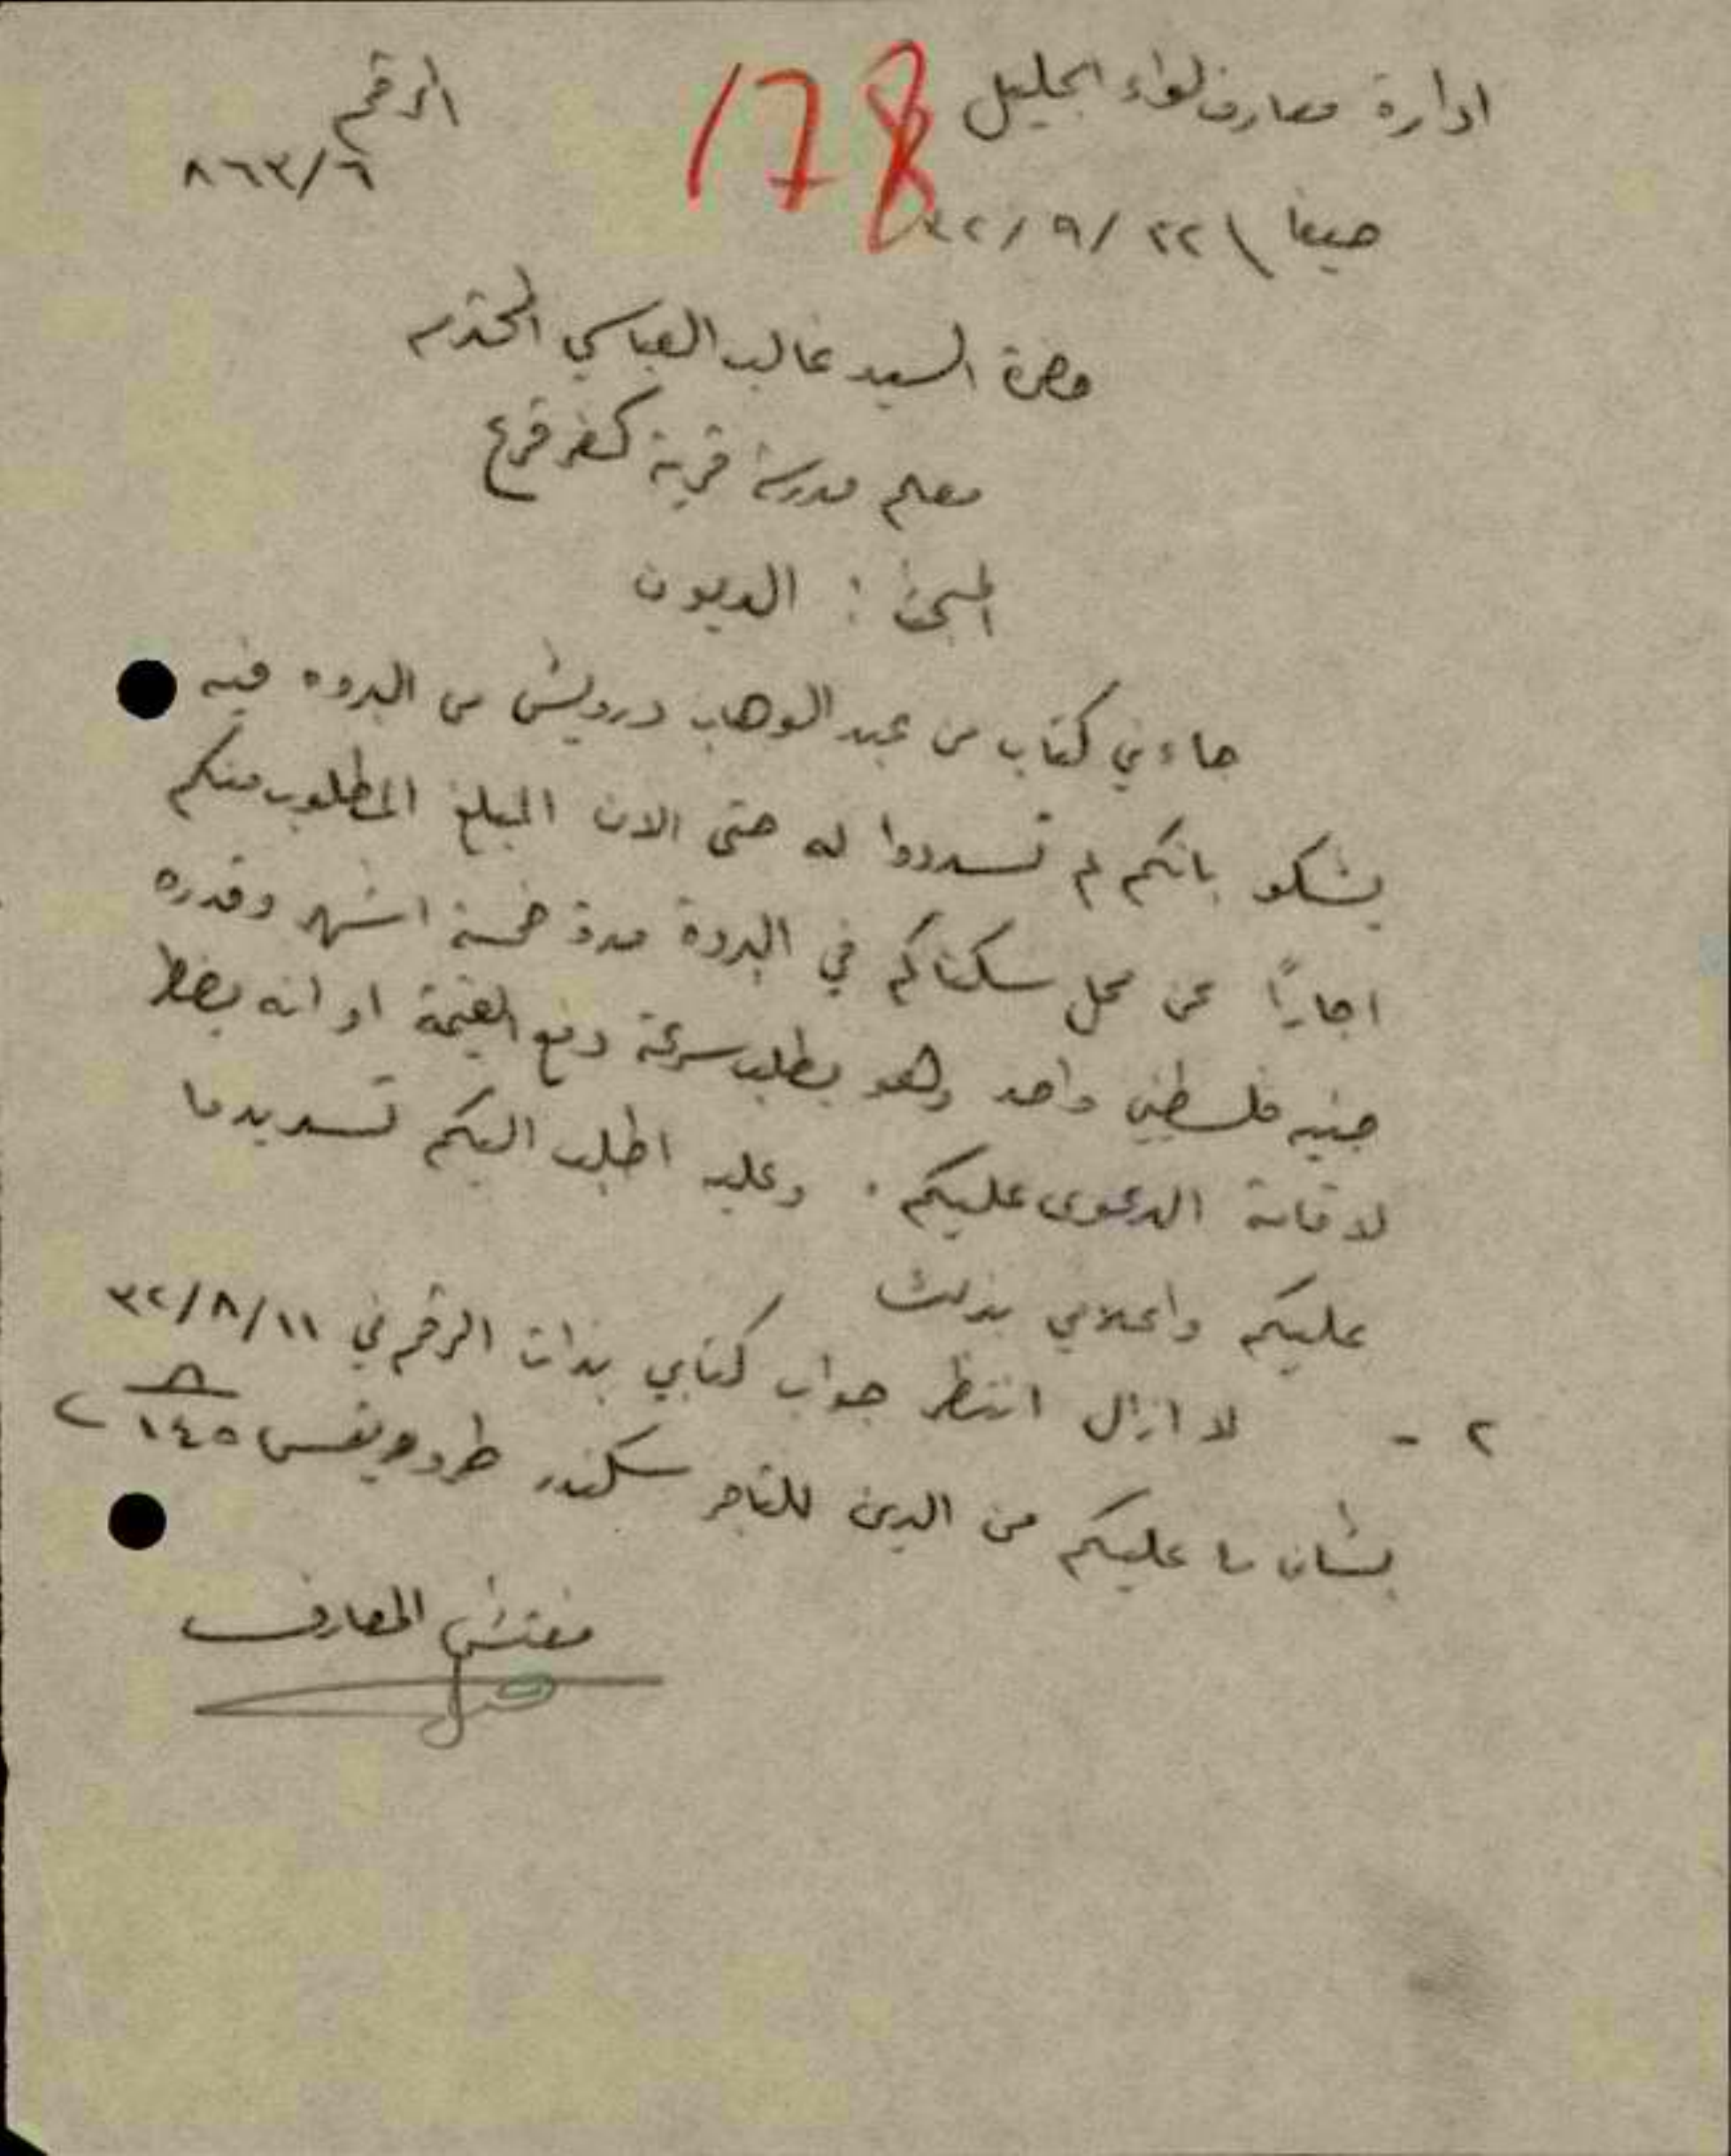 ادارة معارف لواء الجليل
178
الرقم
٨٦٣/٦
حيفا \ ٢٢ / ٩ / ٣٢
حضرة السيد غالب العباسي المحترم
معلم مدرسة قرية كفر قرع
المبحث : الديون
جاءني كتاب من عبد الوهاب درويش من البروه فيه
يشكو بانكم لم تسددوا له حتى الان المبلغ المطلوب منكم
اجارًا عن محل سكناكم في البروة مدة خمسة اشهر وقدره
جنيه فلسطيني واحد وهو يطلب سرعة دفع القيمة او انه يضطر
لاقامة الدعوى عليكم . وعليه اطلب اليكم تسديد ما
عليكم واعلامي بذلك
٢ - لا ازال انتظر جواب كتابي بذات الرقم في ٣٢/٨/١١
بشان ما عليكم من الدين للتاجر سكندر
مفتش المعارف